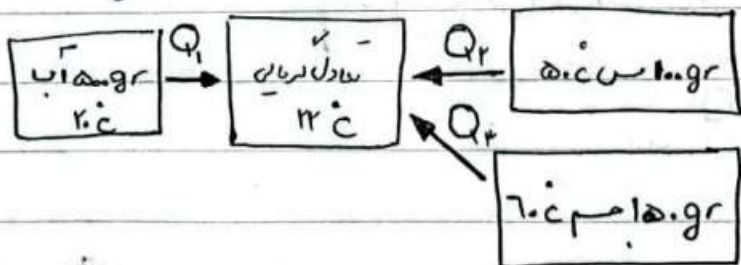 ۵۰۰gr آب
۲۰°C
Q۱
تعادل گرمایی
۲۲°C
Q۲
۱۰۰gr مس ۵۰°C
Q۳
۱۵۰gr جسم ۶۰°C